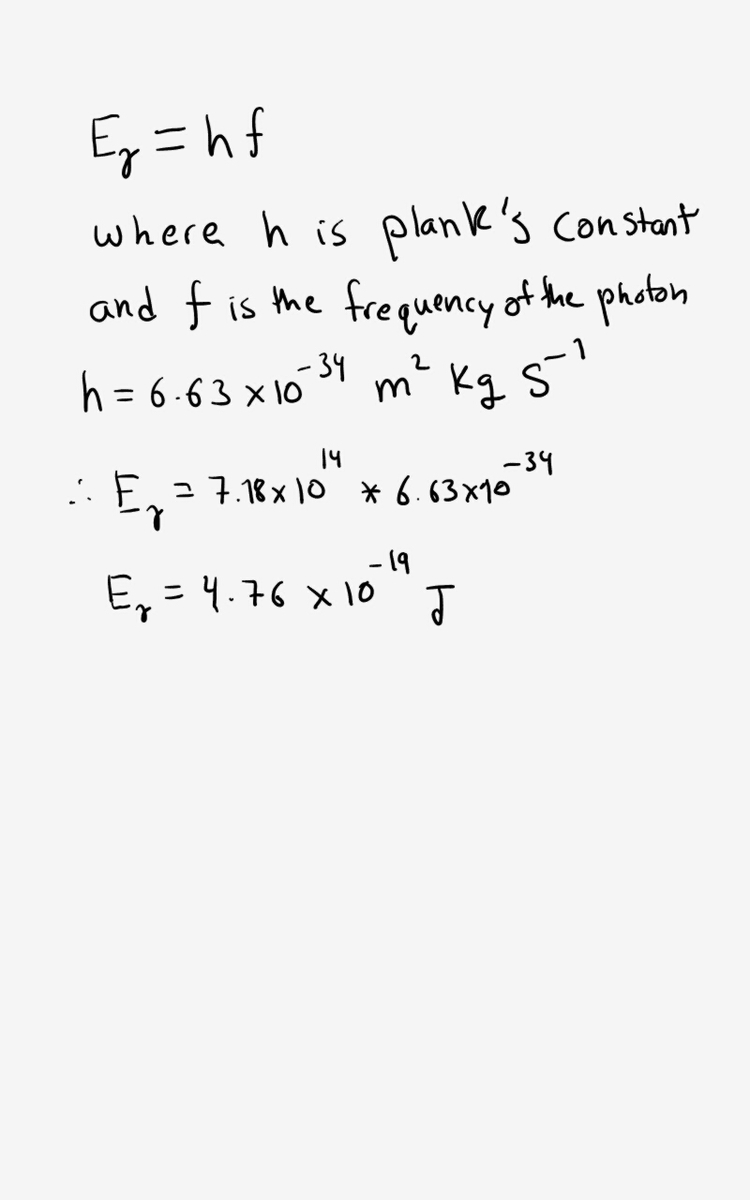 E_γ = h f
where h is plank's constant
and f is the frequency of the photon
h = 6.63 × 10⁻³⁴ m² Kg S⁻¹
∴ E_γ = 7.18 × 10¹⁴ * 6.63 × 10⁻³⁴
E_γ = 4.76 × 10⁻¹⁹ J